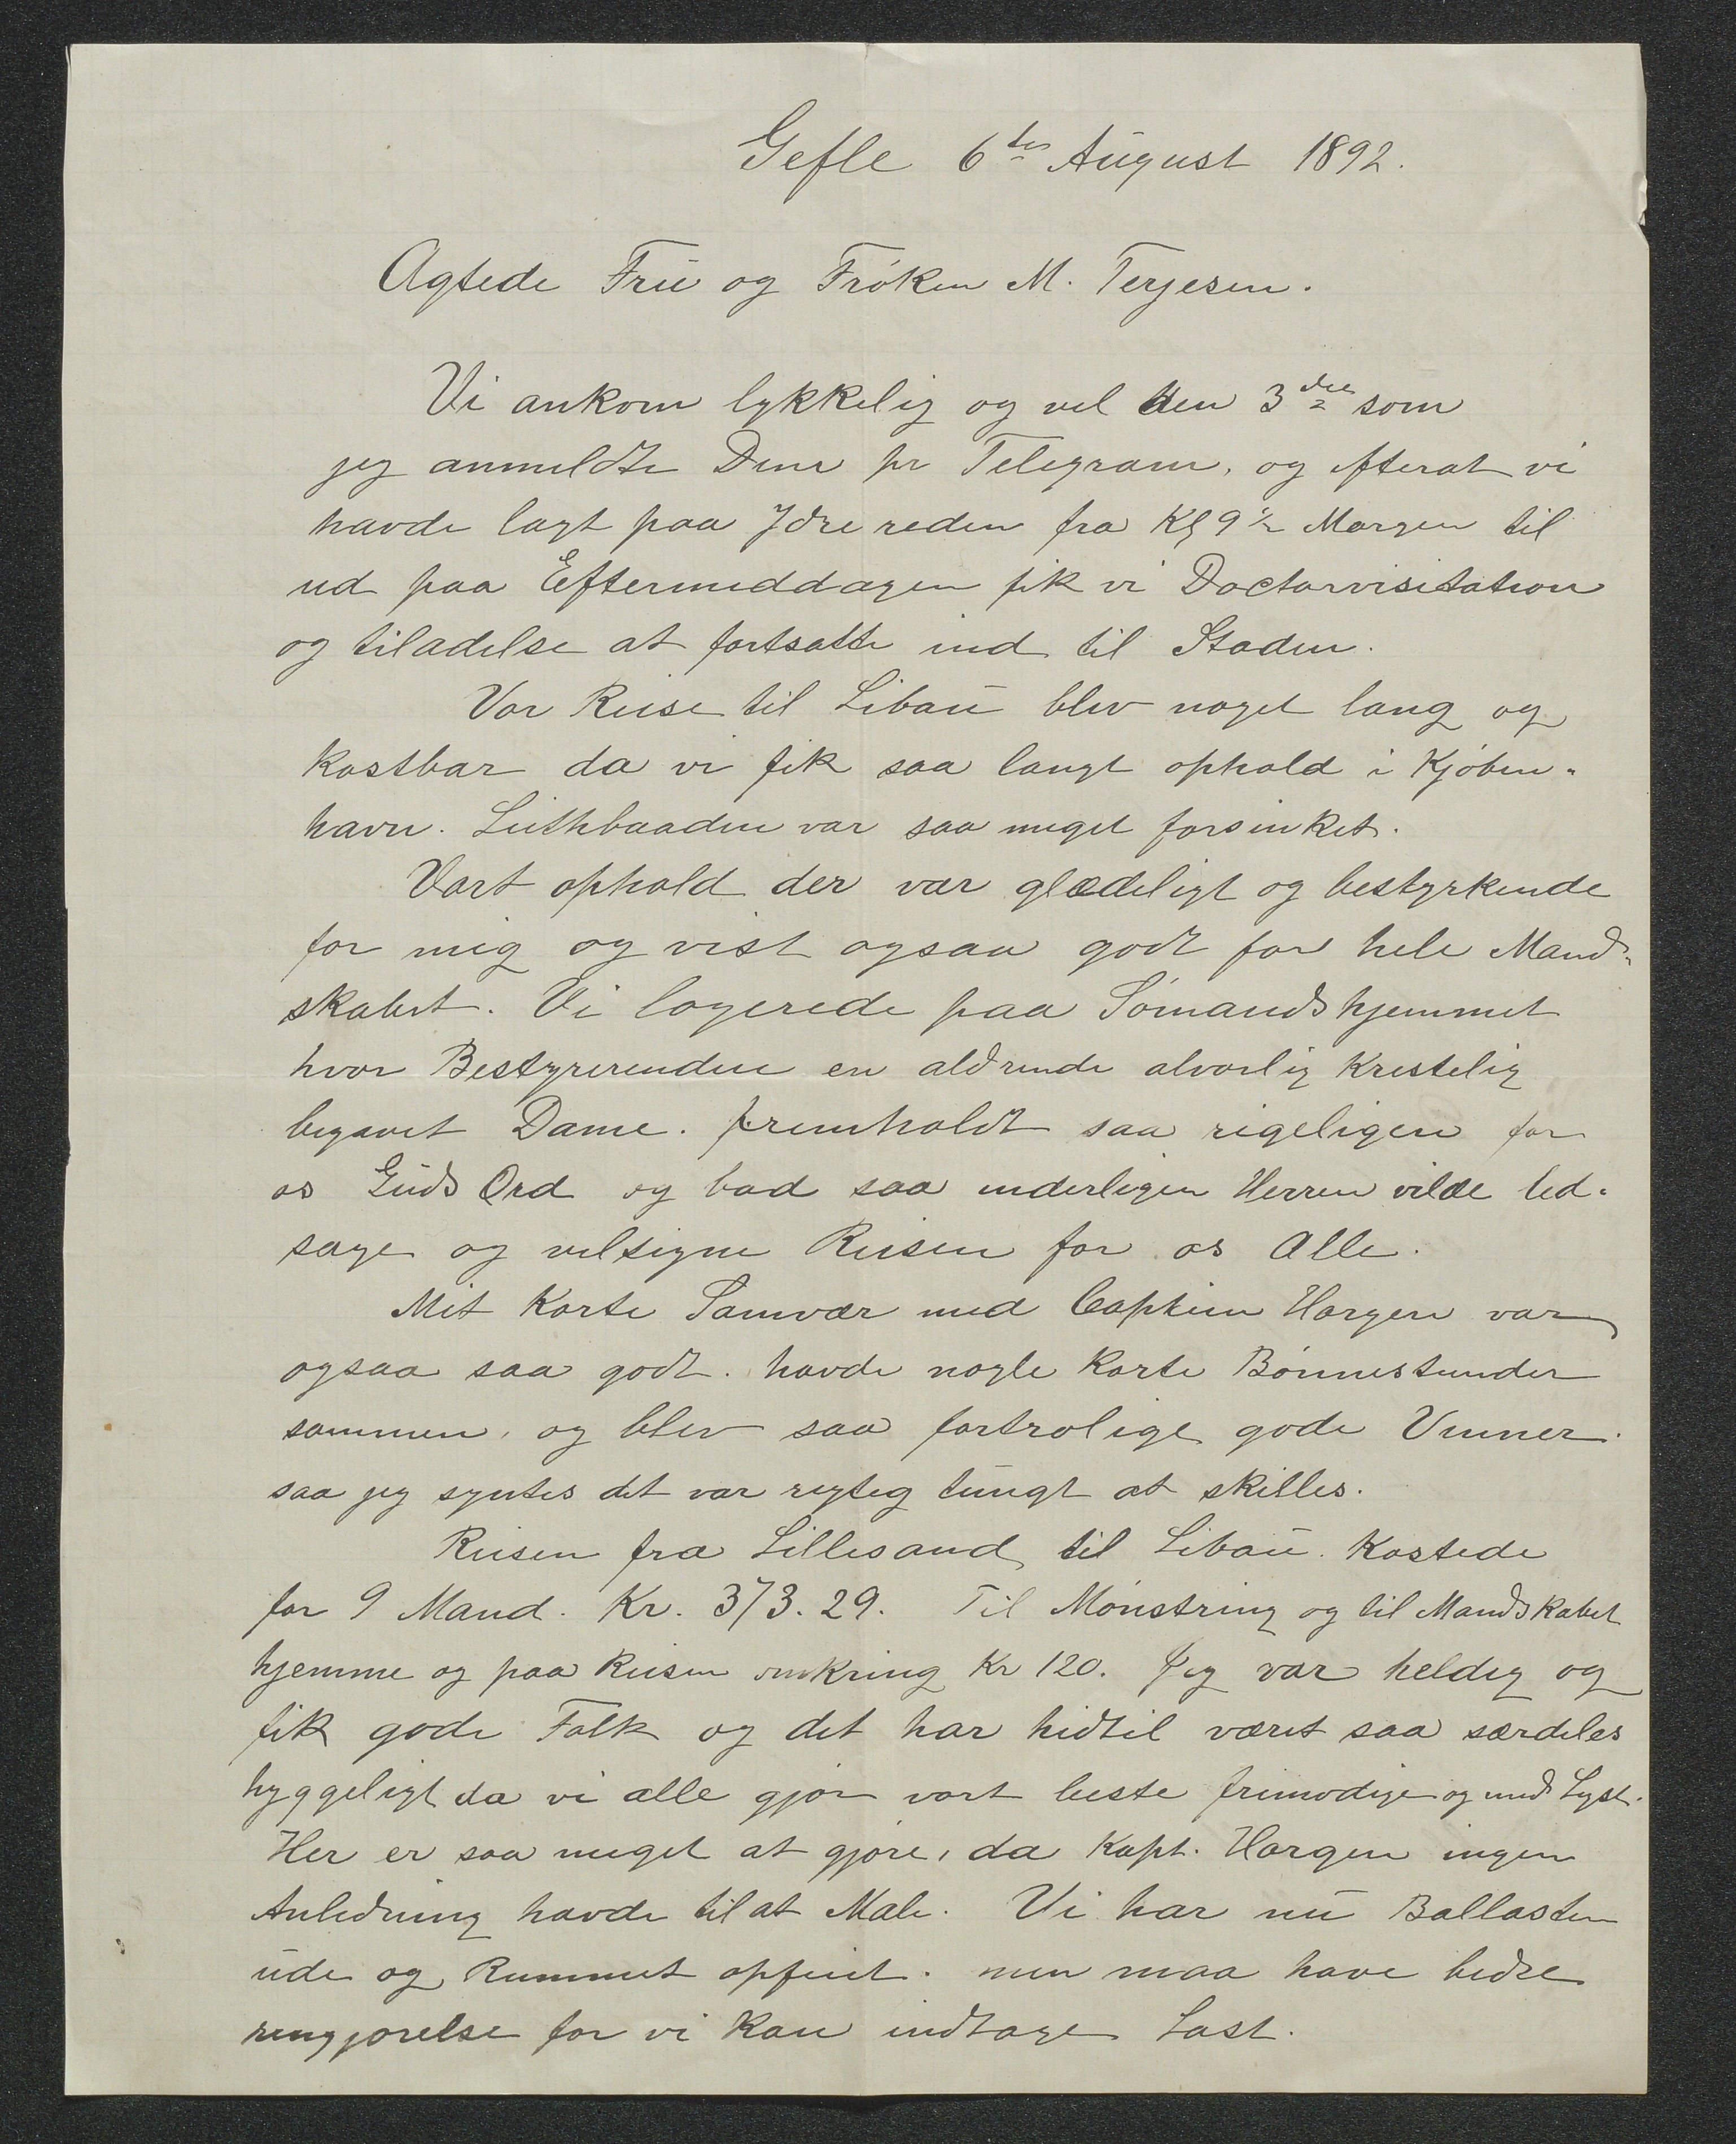 Gefle 6te August 1892.
Agtede Frü og Frøken M. Terjesen.
Vi ankom lykkelig og vel den 3die som
jeg anmeldte Dem pr Telegram, og efterat vi
havde lagt paa Ydre reden fra Kl 9½ Morgen til
ud paa Eftermeddagen fik vi Doctorvisitation
og tiladelse at fortsatte ind til Staden.
Vor Reise til Libaü blev noget lang og
kostbar da vi fik saa langt ophold i Kjøben-
havn. Leithbaaden var saa meget forsinket.
Vort ophold der var glædeligt og bestyrkende
for mig og vist ogsaa godt for hele Mand-
skabet. Vi logerede paa Sømandshjemmet
hvor Bestyrerenden en aldrende alvorlig Kristelig
begavet Dame. fremholdt saa rigeligen for
os Güds Ord og bad saa inderligen Herren vilde led-
sage og velsigne Reisen for os Alle.
Mit Korte Samvær med Captein Horgen var
ogsaa saa godt. havde nogle Korte Bønnestunder
sammen, og blev saa fortrolige gode Venner.
saa jeg syntes det var regteg tüngt at skilles.
Reisen fra Lillesand til Libaü. Kostede
for 9 Mand. Kr. 373.29. Til Mønstring og til Mandskabet
hjemme og paa Reisen omkring Kr 120. Jeg var heldig og
fik gode Folk og det har hidtil været saa særdeles
hyggeligt da vi alle gjør vort beste frimodige og med Lyst.
Her er saa meget at gjøre, da Kapt. Horgen ingen
Anledning havde til at Male. Vi har nü Ballasten
üde og Rummet opfeiet. men maa have bedre
rengjørelse før vi Kan indtage Last.